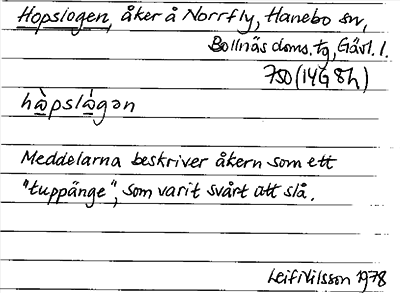 Hopslogen, åker å Norrfly, Hanebo sn,
Bollnäs doms. tg, Gävl. l.
750 (14G 8h)
hà̱pslá̱gən
Meddelarna beskriver åkern som ett
"tuppänge", som varit svårt att slå.
Leif Nilsson 1978